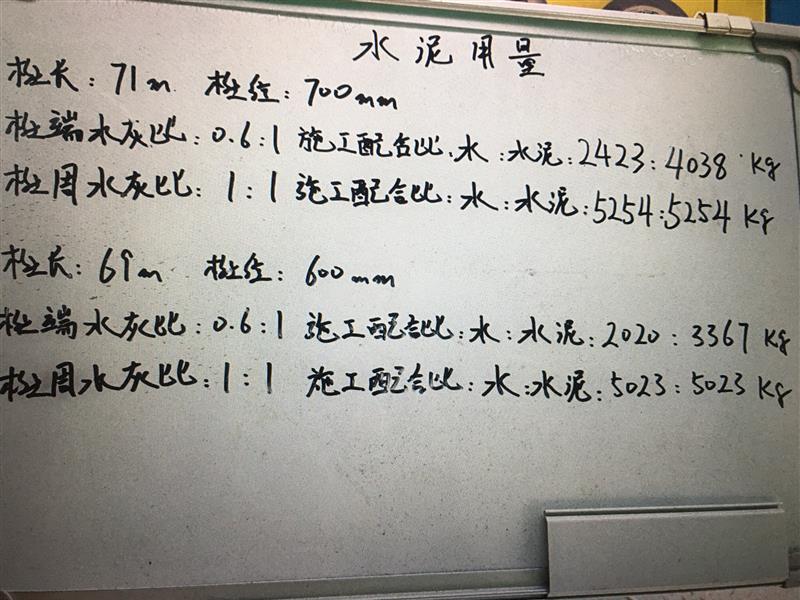 水泥用量
桩长：71m 桩径：700mm
桩端水灰比：0.6：1 施工配合比：水：水泥：2423：4038 kg
桩周水灰比：1：1 施工配合比：水：水泥：5254：5254 kg
桩长：69m 桩径：600mm
桩端水灰比：0.6：1 施工配合比：水：水泥：2020：3367 kg
桩周水灰比：1：1 施工配合比：水：水泥：5023：5023 kg